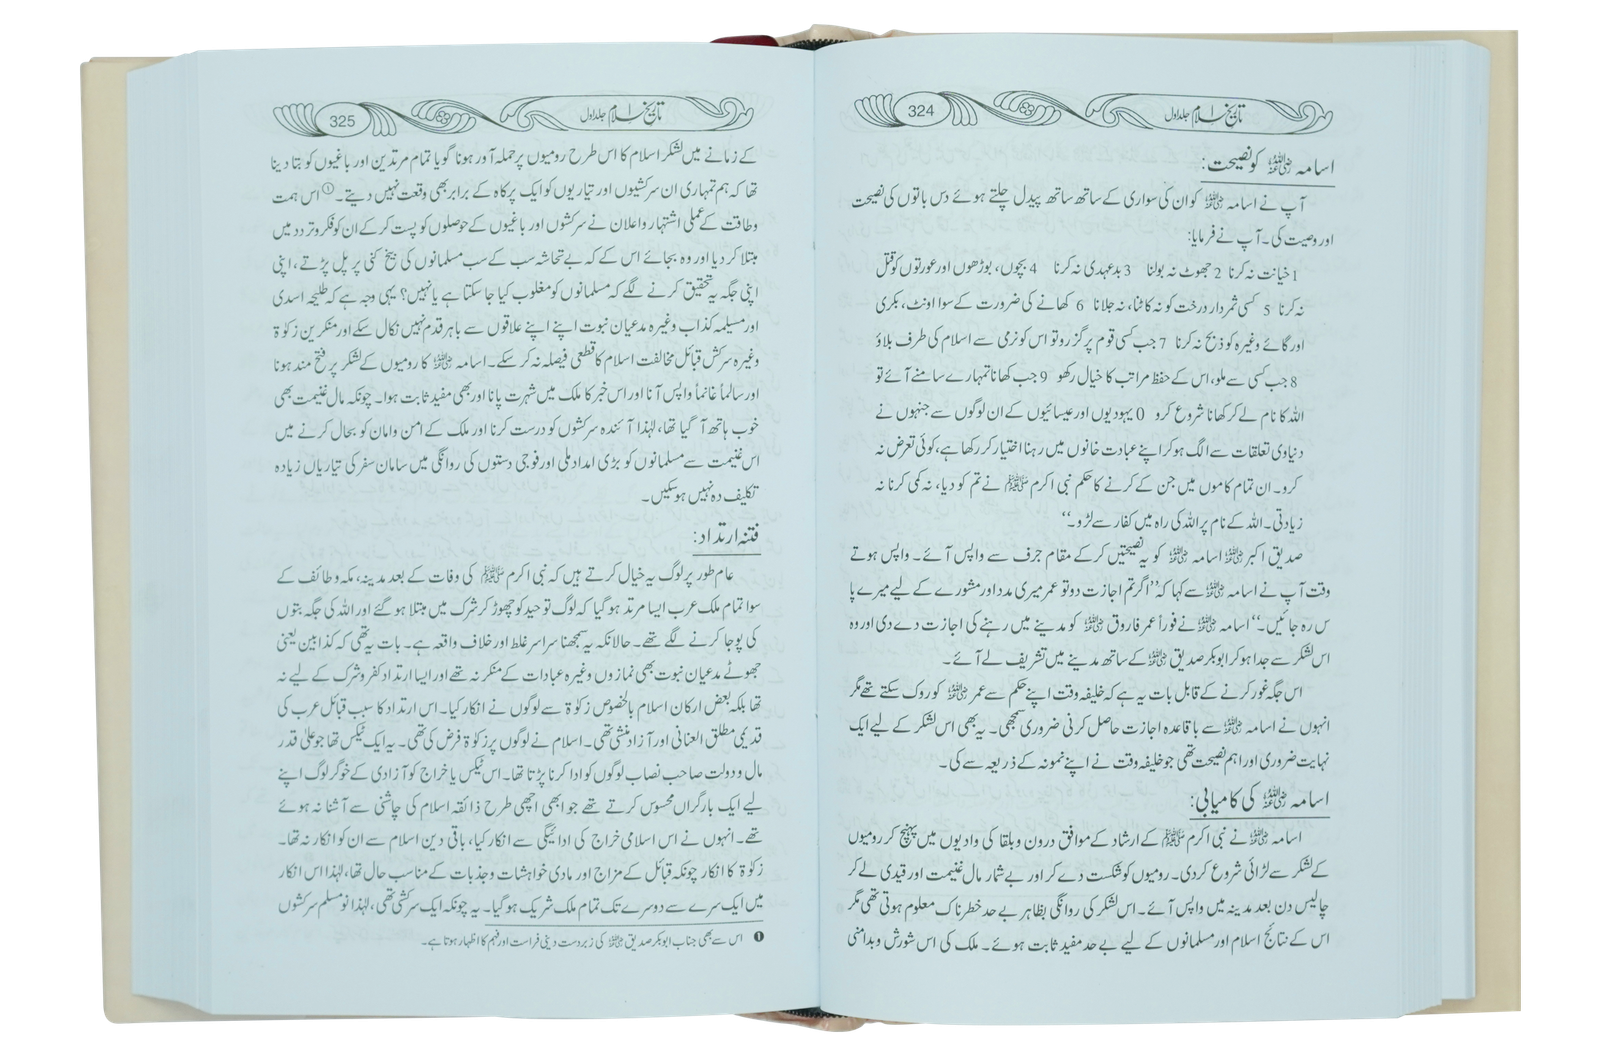 324
تاریخ اسلام جلد اول
اسامہ ﷜ کو نصیحت:
آپ نے اسامہ ﷜ کو ان کی سواری کے ساتھ ساتھ پیدل چلتے ہوئے دس باتوں کی نصیحت
اور وصیت کی۔ آپ نے فرمایا:
1 خیانت نہ کرنا 2 جھوٹ نہ بولنا 3 بدعہدی نہ کرنا 4 بچوں، بوڑھوں اور عورتوں کو قتل
نہ کرنا 5 کسی ثمر دار درخت کو نہ کاٹنا، نہ جلانا 6 کھانے کی ضرورت کے سوا اونٹ، بکری
اور گائے وغیرہ کو ذبح نہ کرنا 7 جب کسی قوم پر گزرو تو اس کو نرمی سے اسلام کی طرف بلاؤ
8 جب کسی سے ملو، اس کے حفظ مراتب کا خیال رکھو 9 جب کھانا تمہارے سامنے آئے تو
اللہ کا نام لے کر کھانا شروع کرو 0 یہودیوں اور عیسائیوں کے ان لوگوں سے جنہوں نے
دنیاوی تعلقات سے الگ ہو کر اپنے عبادت خانوں میں رہنا اختیار کر رکھا ہے، کوئی تعرض نہ
کرو۔ ان تمام کاموں میں جن کے کرنے کا حکم نبی اکرم ﷺ نے تم کو دیا، نہ کمی کرنا نہ
زیادتی۔ اللہ کے نام پر اللہ کی راہ میں کفار سے لڑو۔‘‘
صدیق اکبر ﷜ اسامہ ﷜ کو یہ نصیحتیں کر کے مقام جرف سے واپس آئے۔ واپس ہوتے
وقت آپ نے اسامہ ﷜ سے کہا کہ ’’اگر تم اجازت دو تو عمر میری مدد اور مشورے کے لیے میرے پا
س رہ جائیں۔‘‘ اسامہ ﷜ نے فوراً عمر فاروق ﷜ کو مدینے میں رہنے کی اجازت دے دی اور وہ
اس لشکر سے جدا ہو کر ابوبکر صدیق ﷜ کے ساتھ مدینے میں تشریف لے آئے۔
اس جگہ غور کرنے کے قابل بات یہ ہے کہ خلیفہ وقت اپنے حکم سے عمر ﷜ کو روک سکتے تھے مگر
انہوں نے اسامہ ﷜ سے باقاعدہ اجازت حاصل کرنی ضروری سمجھی۔ یہ بھی اس لشکر کے لیے ایک
نہایت ضروری اور اہم نصیحت تھی جو خلیفہ وقت نے اپنے نمونہ کے ذریعہ سے کی۔
اسامہ ﷜ کی کامیابی:
اسامہ ﷜ نے نبی اکرم ﷺ کے ارشاد کے موافق درون و بلقا کی وادیوں میں پہنچ کر رومیوں
کے لشکر سے لڑائی شروع کر دی۔ رومیوں کو شکست دے کر اور بے شمار مال غنیمت اور قیدی لے کر
چالیس دن بعد مدینہ میں واپس آئے۔ اس لشکر کی روانگی بظاہر بے حد خطرناک معلوم ہوتی تھی مگر
اس کے نتائج اسلام اور مسلمانوں کے لیے بے حد مفید ثابت ہوئے۔ ملک کی اس شورش و بدامنی
325
تاریخ اسلام جلد اول
کے زمانے میں لشکر اسلام کا اس طرح رومیوں پر حملہ آور ہونا گویا تمام مرتدین اور باغیوں کو بتا دینا
تھا کہ ہم تمہاری ان سرکشیوں اور تیاریوں کو ایک پرکاہ کے برابر بھی وقعت نہیں دیتے۔ ① اس ہمت
وطاقت کے عملی اشتہار و اعلان نے سرکشوں اور باغیوں کے حوصلوں کو پست کر کے ان کو فکر و تردد میں
مبتلا کر دیا اور وہ بجائے اس کے کہ بے تحاشہ سب کے سب مسلمانوں کی بیخ کنی پر پل پڑتے، اپنی
اپنی جگہ یہ تحقیق کرنے لگے کہ مسلمانوں کو مغلوب کیا جا سکتا ہے یا نہیں؟ یہی وجہ ہے کہ طلیحہ اسدی
اور مسیلمہ کذاب وغیرہ مدعیان نبوت اپنے اپنے علاقوں سے باہر قدم نہیں نکال سکے اور منکرین زکوٰۃ
وغیرہ سرکش قبائل مخالفت اسلام کا قطعی فیصلہ نہ کر سکے۔ اسامہ ﷜ کا رومیوں کے لشکر پر فتح مند ہونا
اور سالماً غانماً واپس آنا اور اس خبر کا ملک میں شہرت پانا اور بھی مفید ثابت ہوا۔ چونکہ مال غنیمت بھی
خوب ہاتھ آ گیا تھا، لہٰذا آئندہ سرکشوں کو درست کرنا اور ملک کے امن و امان کو بحال کرنے میں
اس غنیمت سے مسلمانوں کو بڑی امداد ملی اور فوجی دستوں کی روانگی میں سامان سفر کی تیاریاں زیادہ
تکلیف دہ نہیں ہو سکیں۔
فتنہ ارتداد:
عام طور پر لوگ یہ خیال کرتے ہیں کہ نبی اکرم ﷺ کی وفات کے بعد مدینہ، مکہ و طائف کے
سوا تمام ملک عرب ایسا مرتد ہو گیا کہ لوگ توحید کو چھوڑ کر شرک میں مبتلا ہو گئے اور اللہ کی جگہ بتوں
کی پوجا کرنے لگے تھے۔ حالانکہ یہ سمجھنا سراسر غلط اور خلاف واقعہ ہے۔ بات یہ تھی کہ کذابین یعنی
جھوٹے مدعیان نبوت بھی نمازوں وغیرہ عبادات کے منکر نہ تھے اور ایسا ارتداد کفر و شرک کے لیے نہ
تھا بلکہ بعض ارکان اسلام بالخصوص زکوٰۃ سے لوگوں نے انکار کیا۔ اس ارتداد کا سبب قبائل عرب کی
قدیمی مطلق العنانی اور آزاد منشی تھی۔ اسلام نے لوگوں پر زکوٰۃ فرض کی تھی۔ یہ ایک ٹیکس تھا جو علیٰ قدر
مال و دولت صاحب نصاب لوگوں کو ادا کرنا پڑتا تھا۔ اس ٹیکس یا خراج کو آزادی کے خوگر لوگ اپنے
لیے ایک بار گراں محسوس کرتے تھے جو ابھی اچھی طرح ذائقہ اسلام کی چاشنی سے آشنا نہ ہوئے
تھے۔ انہوں نے اس اسلامی خراج کی ادائیگی سے انکار کیا، باقی دین اسلام سے ان کو انکار نہ تھا۔
زکوٰۃ کا انکار چونکہ قبائل کے مزاج اور مادی خواہشات و جذبات کے مناسب حال تھا، لہٰذا اس انکار
میں ایک سرے سے دوسرے تک تمام ملک شریک ہو گیا۔ یہ چونکہ ایک سرکشی تھی، لہٰذا نو مسلم سرکشوں
❶ اس سے بھی جناب ابوبکر صدیق ﷜ کی زبردست دینی فراست اور فہم کا اظہار ہوتا ہے۔